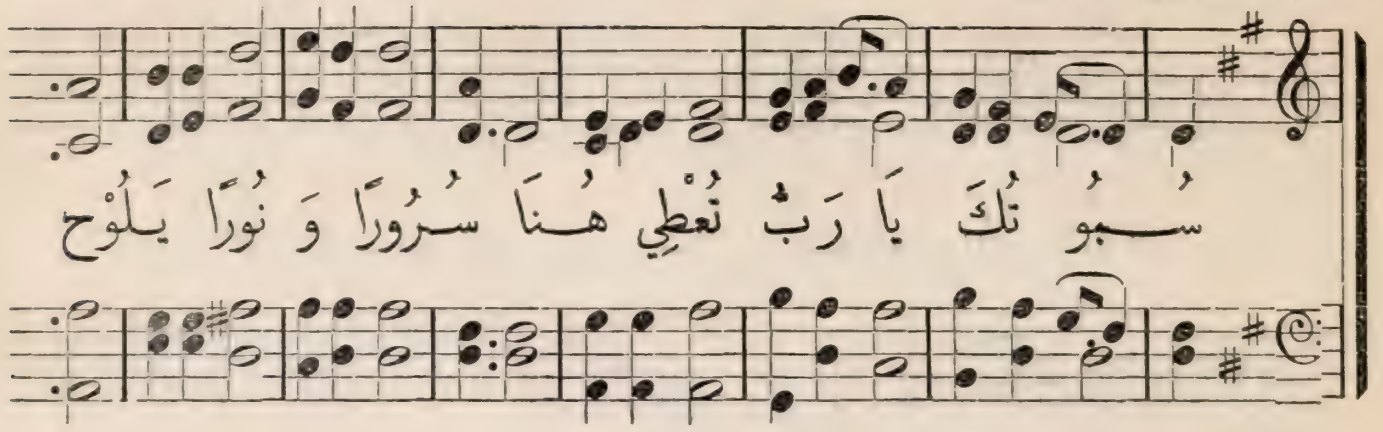 سُبُو تُكَ يَا رَبُّ تُعْطِي هُنَا سُرُورًا وَ نُورًا يَلُوْح